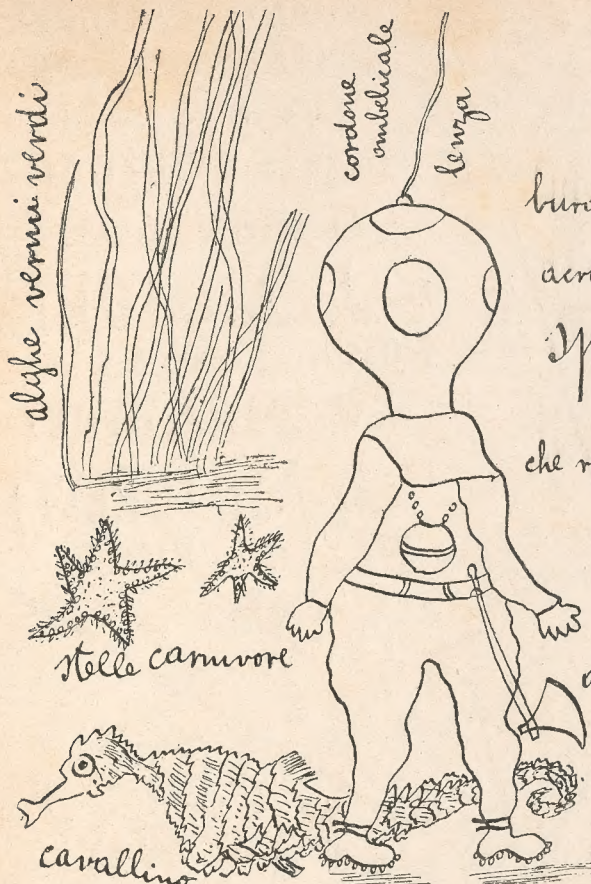 alghe vermi verdi
cordone
ombelicale
lenza
che
stelle carnivore
cavallino